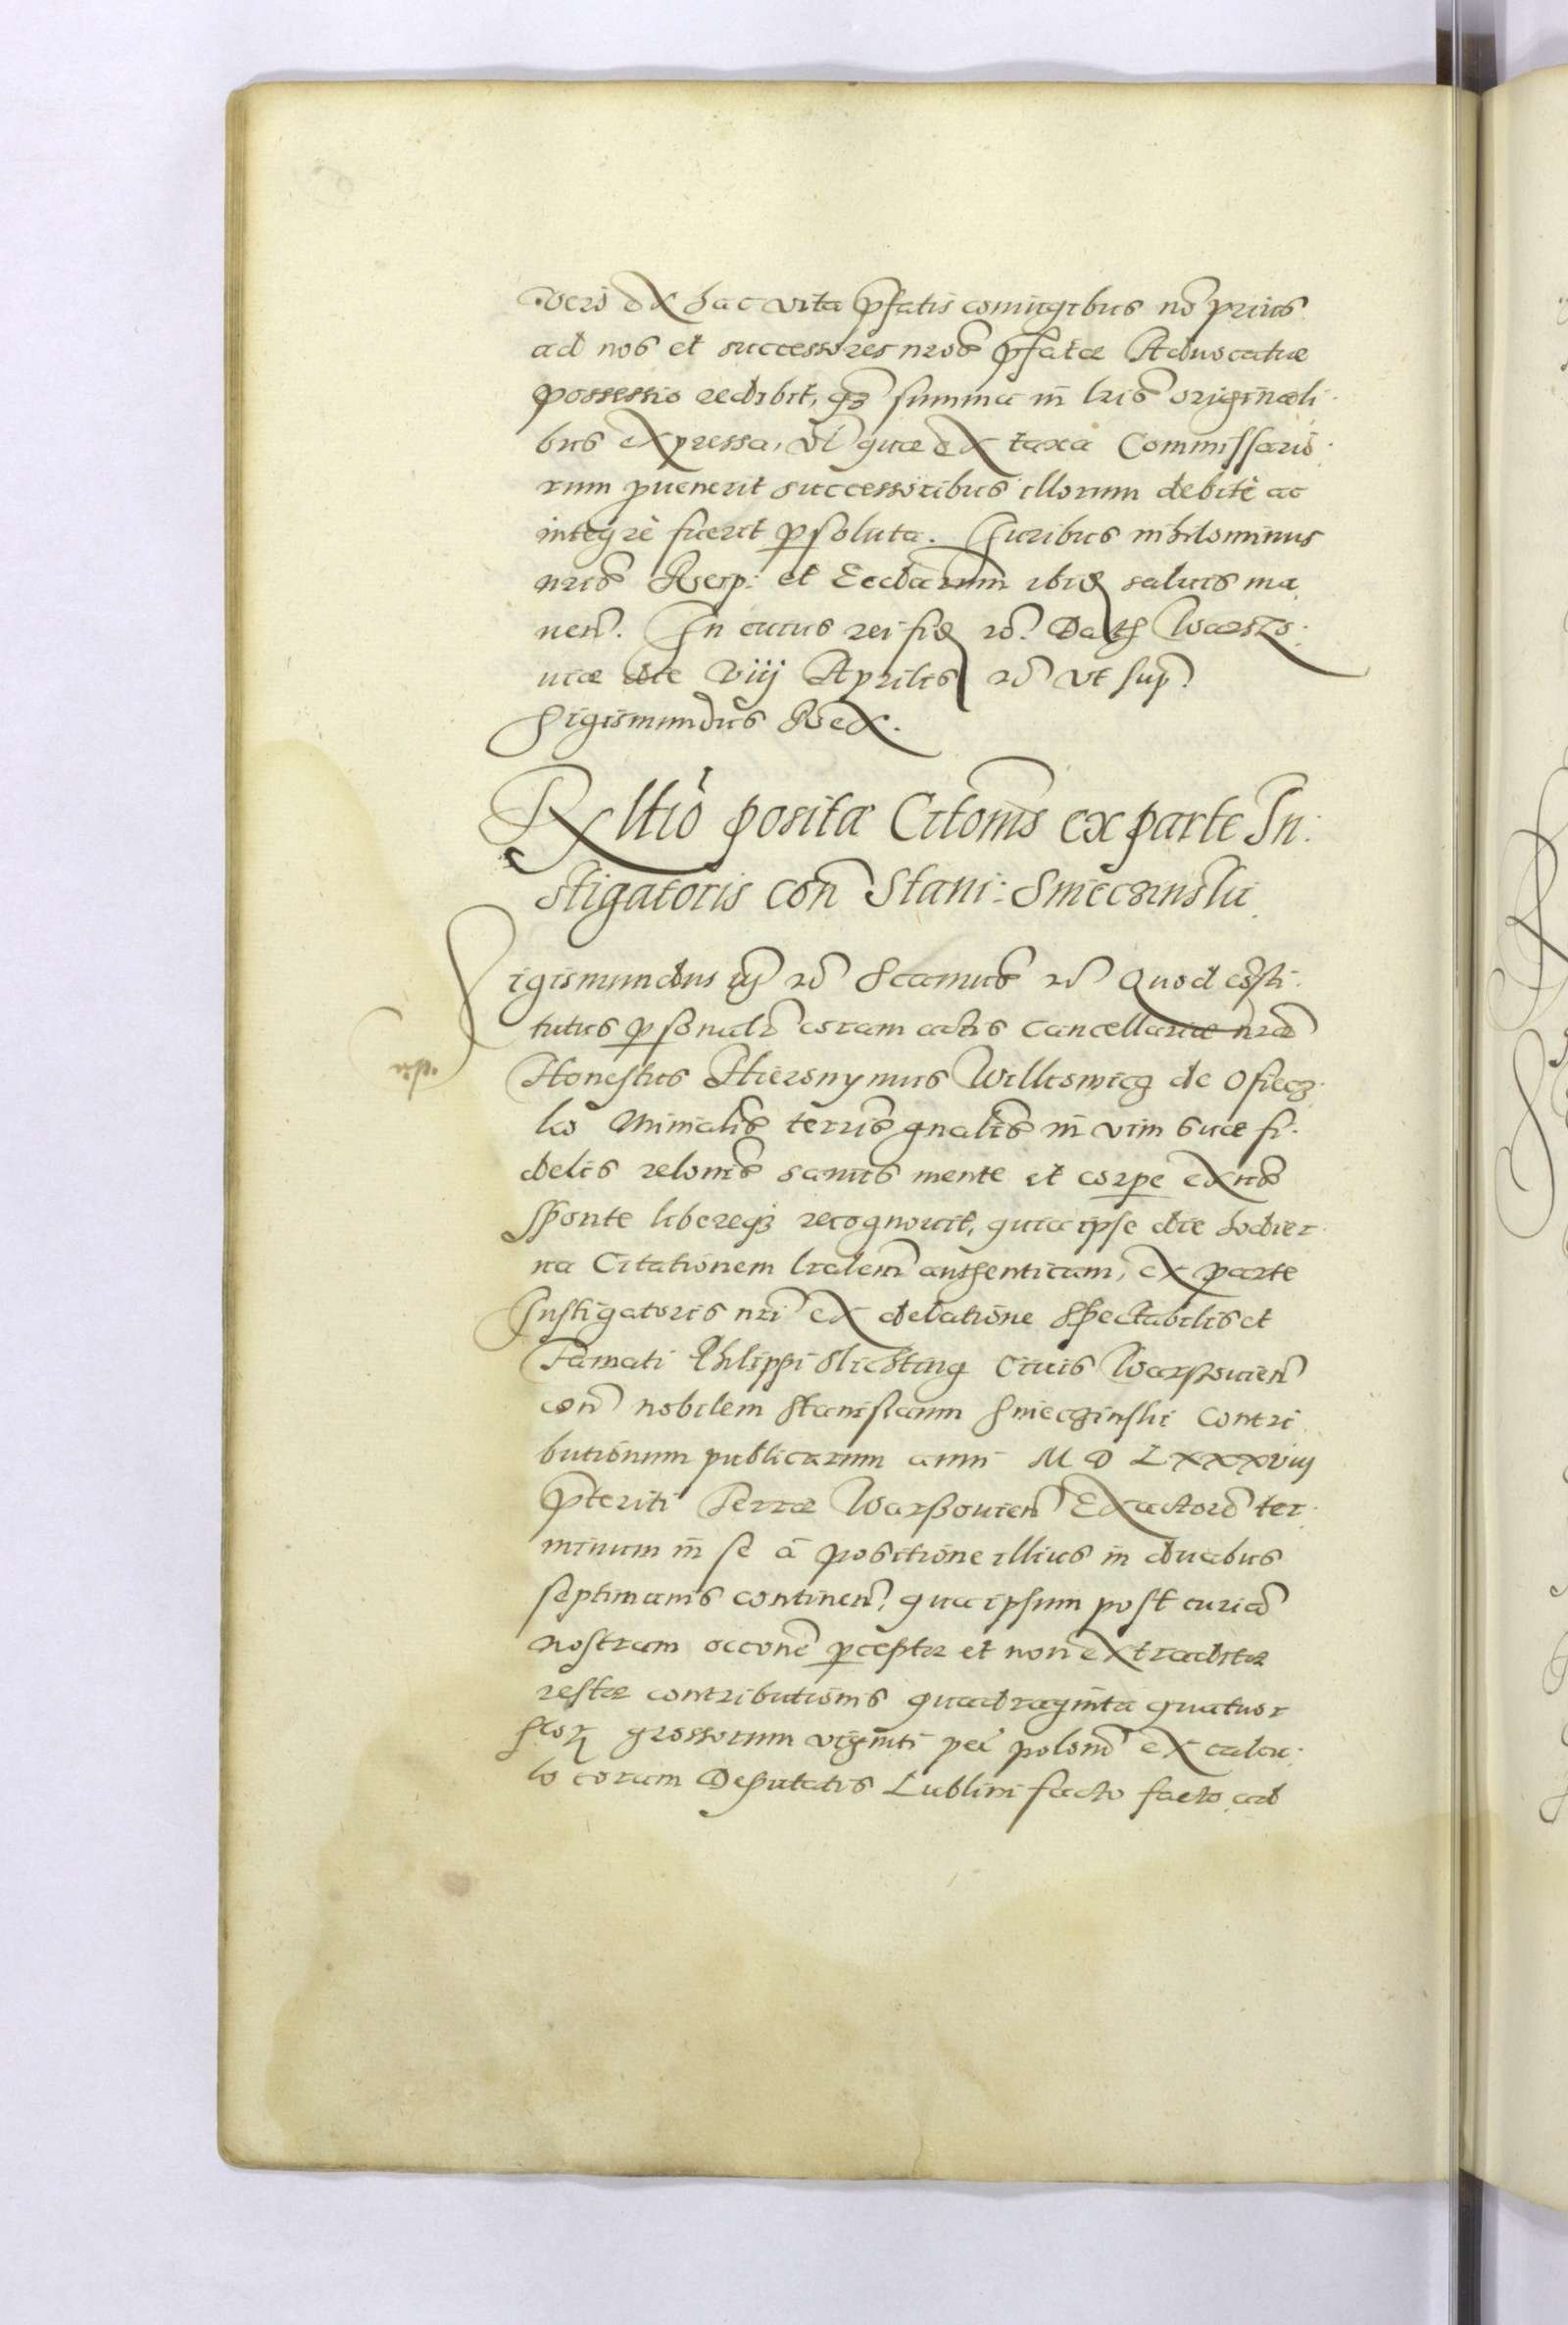 vero ex hac vita pfatis coniugibus nõ prius
ad nos et successores nros pfatæ Aduocatiæ
possessio redibit, qʒ summa in lris originali
bus expressa, vl quæ ex taxa Commissario
rum puenerit successoribus illorum debitè ac
integrè fuerit psoluta. Iuribus nihilominus
nris Reip: et Ecclarum ibid saluis ma
nen. In cuius rei fid etc. Dat Warszo
uiæ die viij Aprilis etc ut sup.
Sigismundus Rex.
Rltio positæ Citonis ex parte In
stigatoris con Stani: Smieczinski
Sigismundus iij etc Seamus etc Quod costi
tutus psonalr coram actis Cancellariæ nræ
Honestus Hieronymus de
ko Minialis terris gnalis in vim suæ fi
delis relonis sanus mente et corpe exns
sponte libereqʒ recognouit, quia ipse die hodier
na Citationem lralem authenticam, ex parte
Instigatoris nri ex delatione Spectabilis et
Famati Philippi Slichting Ciuis Warszouien
con nobilem Stanislaum Smieczinski Contri
butionum publicarum anni M D LXXXviij
pteriti Terræ Warszouien Exactorē ter
minum in se à positione illius in duabus
septimanis continen, qua ipsum post curiã
nostram occone pceptæ et non extraditæ
restæ contributionis quadraginta quatuor
grossorum viginti pei polon ex calcu
lo coram Deputatis Lublini facto facto ad